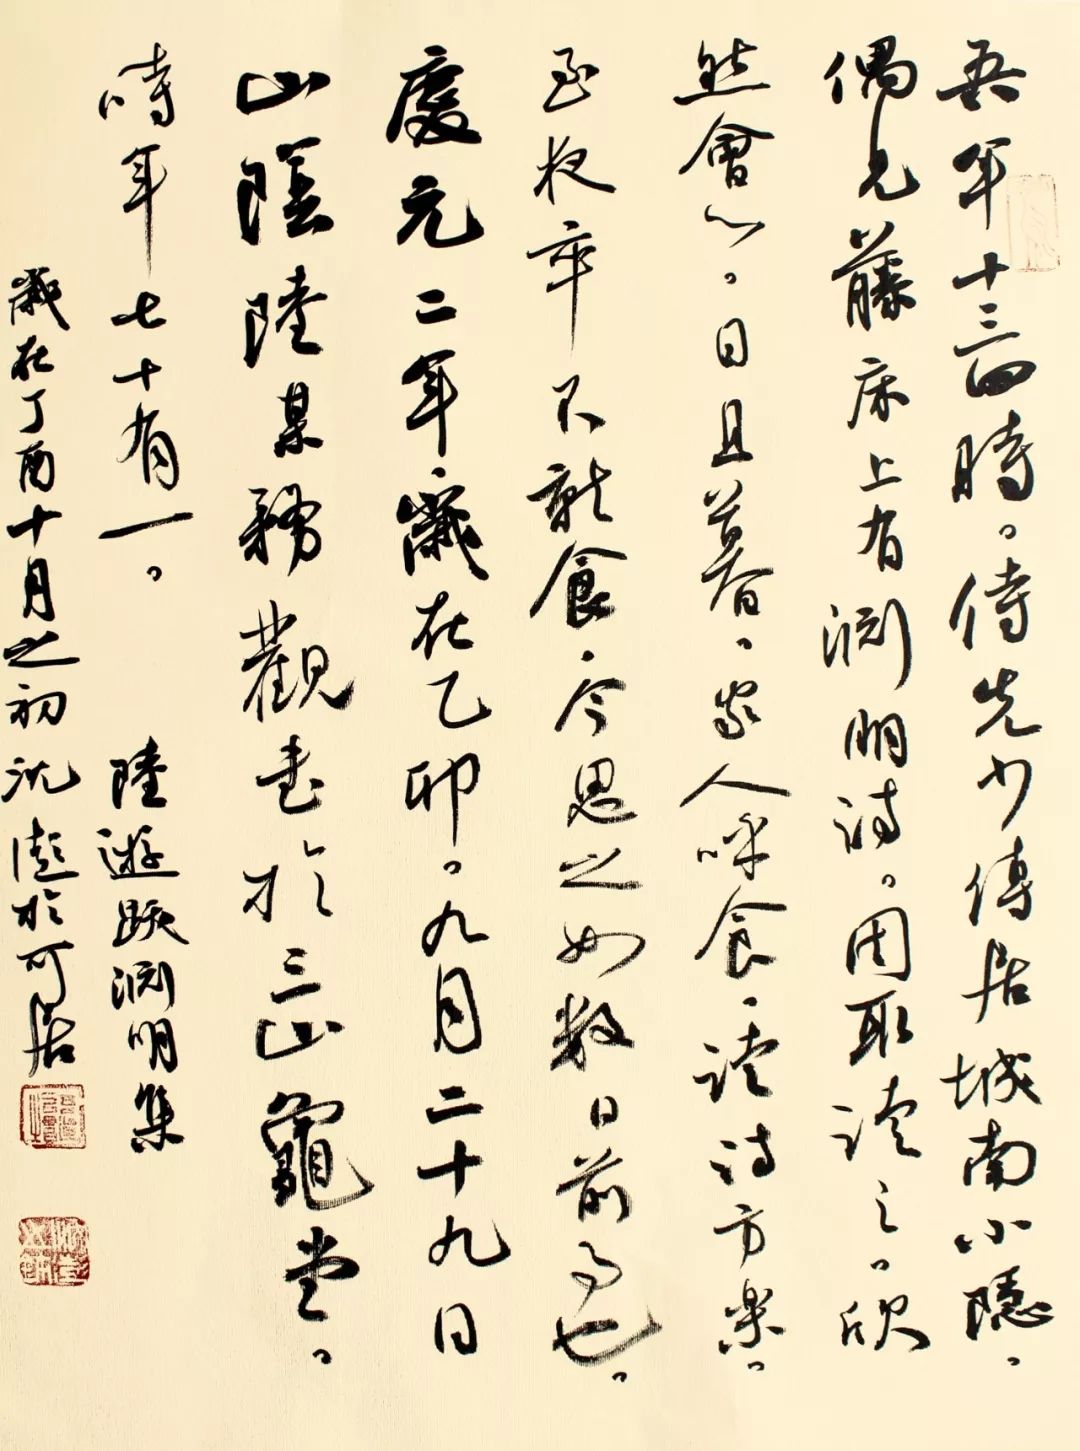 吾年十三四時。侍先少傅居城南小隱。
偶見藤床上有淵明詩。因取读之。欣
然會心。日且暮。家人呼食。读詩方樂。
至夜卒不就食。今思之如数日前事也。
慶元二年。歲在乙卯。九月二十九日
山陰陸某務觀书於三山龜堂。
時年七十有一。 陸遊跋淵明集
歲在丁酉十月之初沈彪於可居